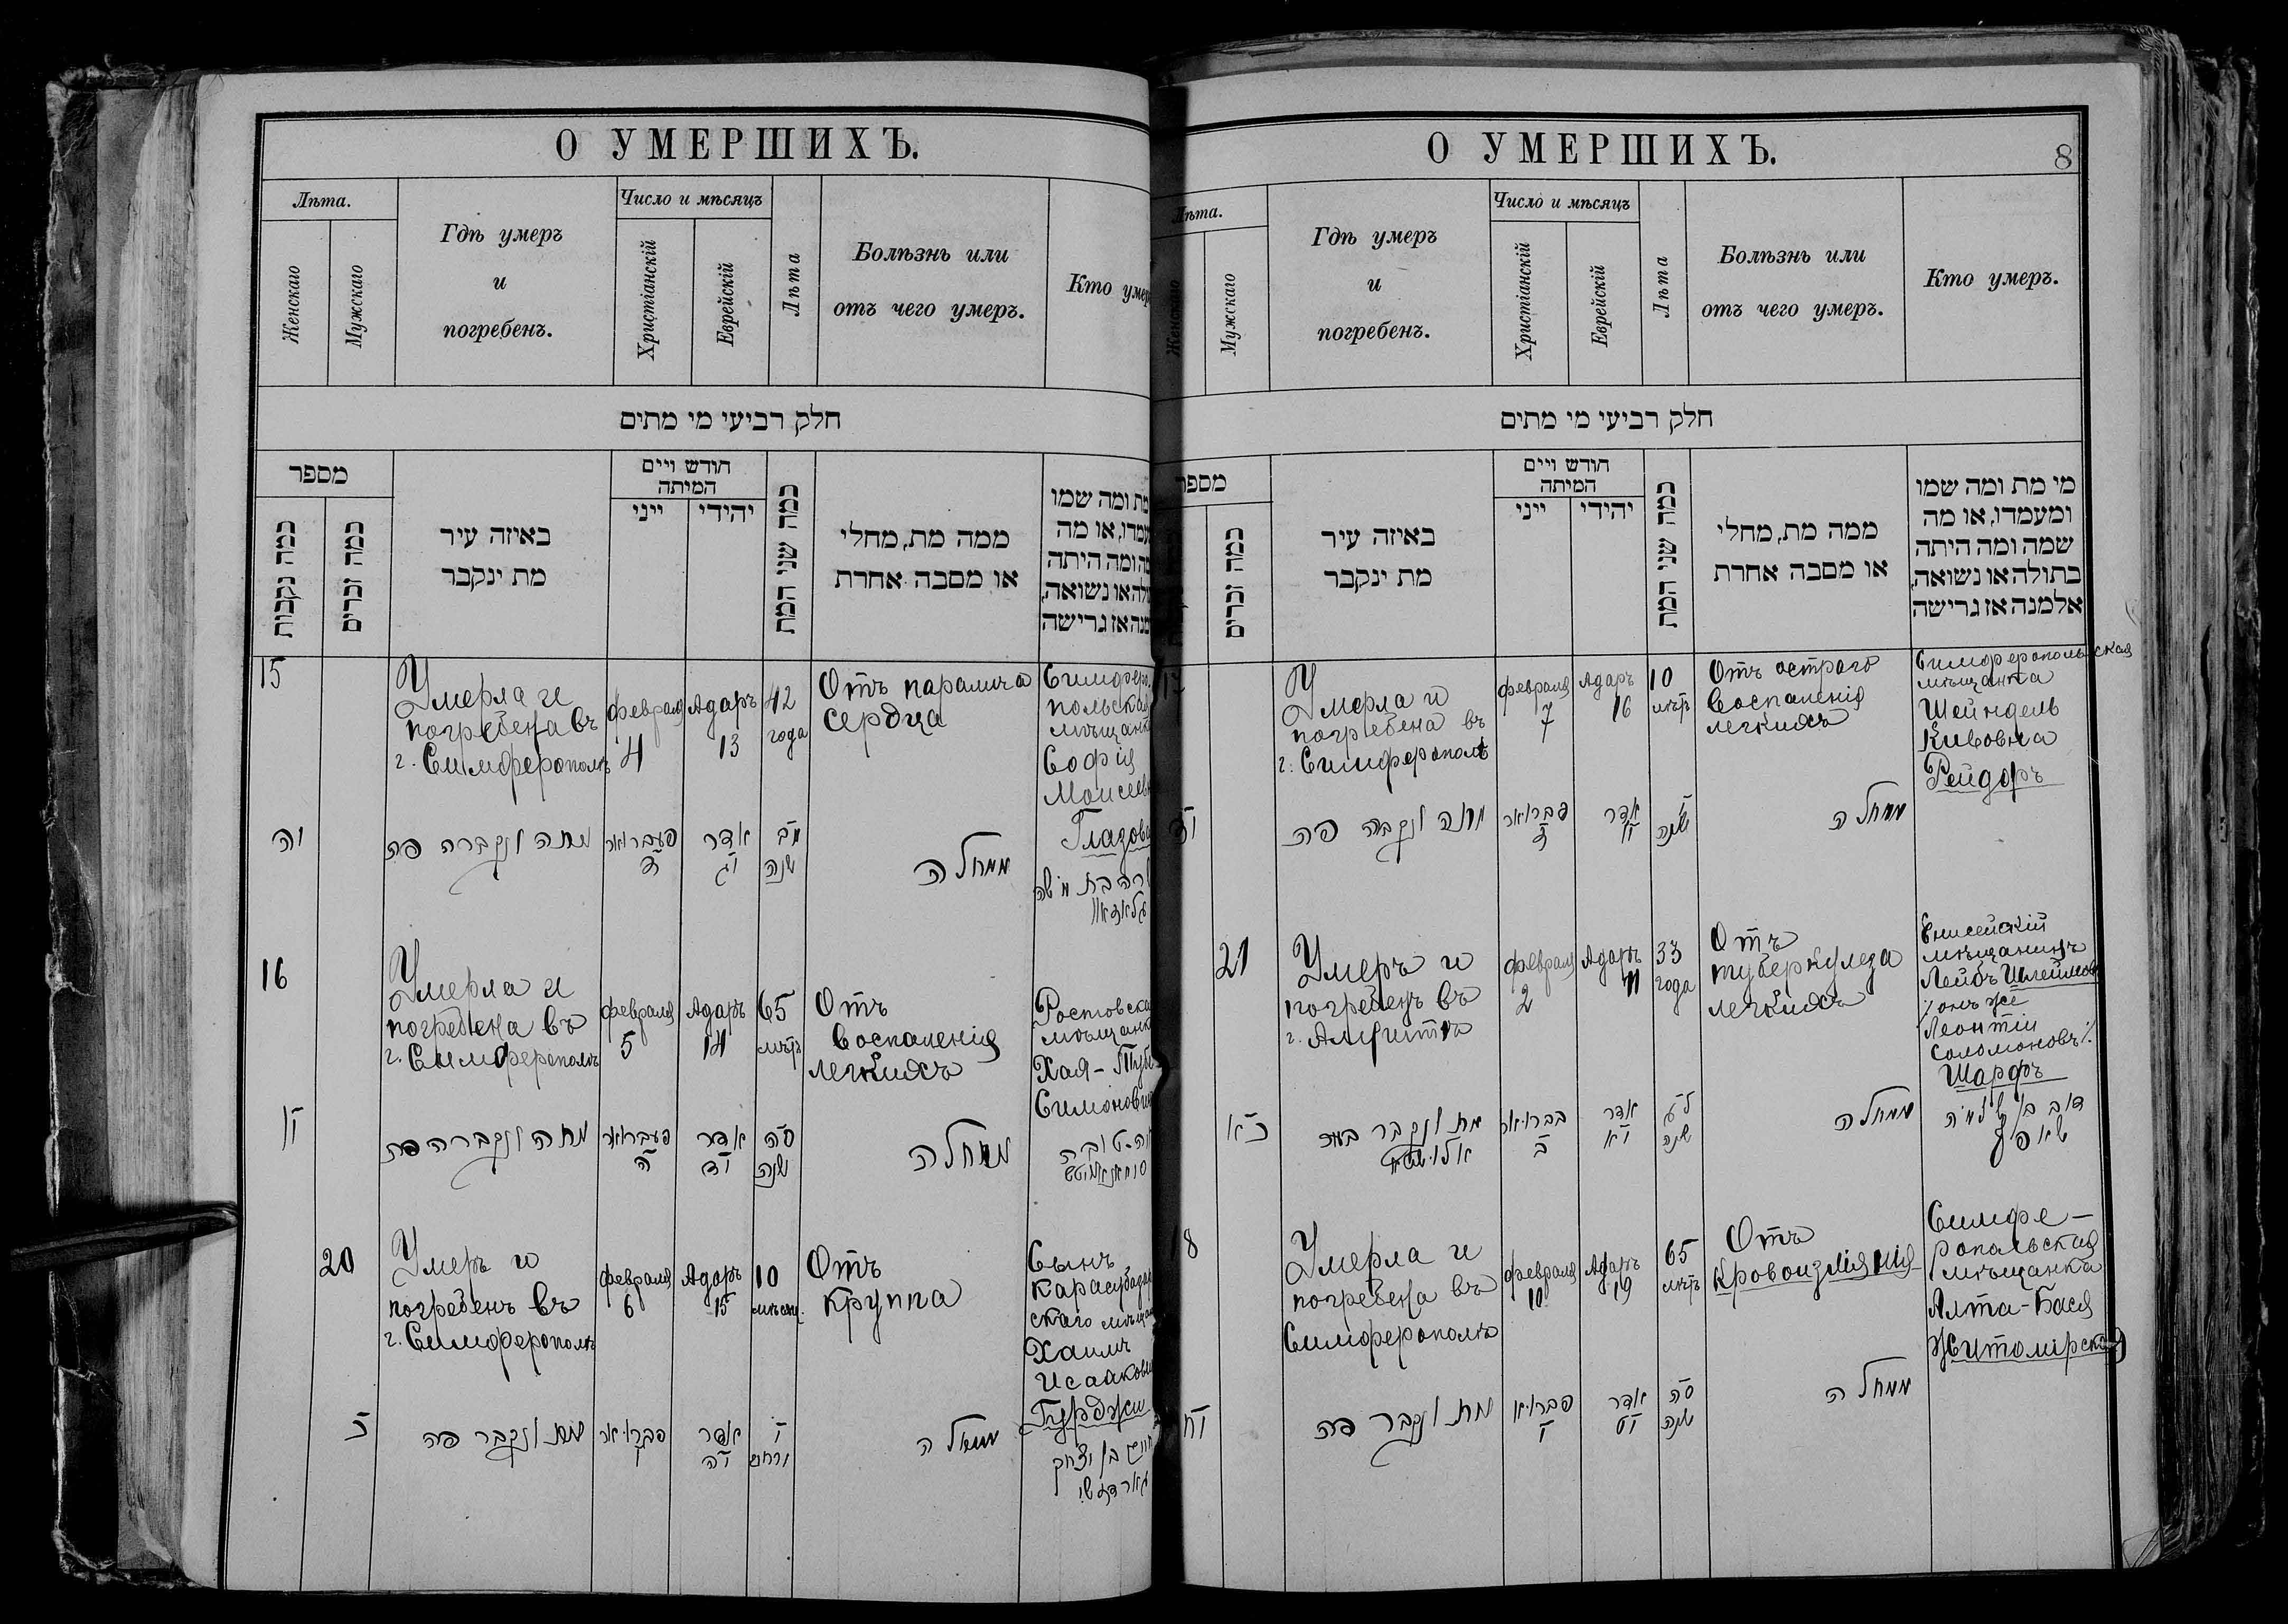 О УМЕРШИХЪ.
Лѣта.
Женскаго
Мужскаго
Гдѣ умеръ
и
погребенъ.
Число и мѣсяцъ
Христіанскій
Еврейскій
Лѣта
Болѣзнь или
отъ чего умеръ.
Кто умер
חלק רביעי מי מתים
מספר
כמה נקבות
כמה זכרים
באיזה עיר
מת ינקבר
חודש ויים
המיתה
ייני
יהודי
כמה שני המת
ממה מת, מחלי
או מסבה אחרת
מת ומה שמו
או מה
ומה היתה
או נשואה,
אז גרישה
15
Умерла и
погребена въ
г. Симферополѣ
февраля
4
Адаръ
13
42
года
Отъ паралича
сердца
Симферо-
польская
мѣщанк
Софія
Моисеев
Глазов
מתה ונקברה פה
פעברואר
ד
אדר
יג
מב
שנה
ממחלה
שרה בת משה
16
Умерла и
погребена въ
г. Симферополѣ
февраля
5
Адаръ
14
65
лѣтъ
Отъ
воспаленія
легкихъ
Ростовска
мѣщанк
Хая-
Симонови
מתה ונקברה פה
פעברואר
ה
אדר
יד
סה
שנה
ממחלה
20
Умеръ и
погребенъ въ
г. Симферополѣ
февраля
6
Адаръ
15
10
мѣсяц.
Отъ
крупа
Сынъ
Карасубазар
скаго мѣщан
Хаимъ
Исааков
Гурджи
כ
מת ונקבר פה
פברואר
אדר
יה
י
ירחים
ממחלה
חיים בן יצחק
О УМЕРШИХЪ.
8
Лѣта.
Женскаго
Мужскаго
Гдѣ умеръ
и
погребенъ.
Число и мѣсяцъ
Христіанскій
Еврейскій
Лѣта
Болѣзнь или
отъ чего умеръ.
Кто умеръ.
חלק רביעי מי מתים
מספר
כמה זכרים
באיזה עיר
מת ינקבר
חודש ויים
המיתה
ייני
יהודי
כמה שני המת
ממה מת, מחלי
או מסבה אחרת
מי מת ומה שמו
ומעמדו, או מה
שמה ומה היתה
בתולה או נשואה,
אלמנה אז גרישה
17
Умерла и
погребена въ
г. Симферополѣ
февраля
7
Адаръ
16
10
лѣтъ
Отъ остраго
воспаленія
легкихъ
Симферопольская
мѣщанка
Шейндель
Кивовна
Рейдоръ
מתה ונקברה פה
פברואר
ז
אדר
יו
י
שנה
ממחלה
21
Умеръ и
погребенъ въ
г. Алуштѣ
февраля
2
Адаръ
11
33
года
Отъ
туберкулеза
легкихъ
Енисейскій
мѣщанинъ
Лейбъ Шлеймов
/онъ же
Леонтій
Соломоновъ/
Шарфъ
כא
מת ונקבר בעיר
ב
אדר
יא
לג
שנה
ממחלה
18
Умерла и
погребена въ
Симферополѣ
февраля
10
Адаръ
19
65
лѣтъ
Отъ
кровоизліянія
Симфе-
ропольская
мѣщанка
Алта-Бася
Житомірская
יח
מת ונקבר פה
י
אדר
יט
סה
שנה
ממחלה